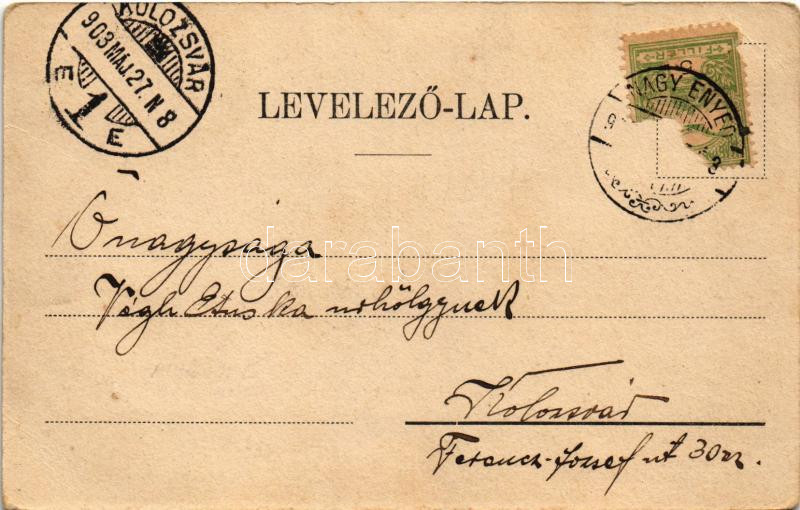 KOLOZSVÁR
903 MÁJ. 27. N 8
E 1 E
FILLÉR
NAGY ENYED
LEVELEZŐ-LAP.
Őnagysága
Végh Etuska urhölgynek
darabanth
Kolozsvár
Ferencz-József ut 30 sz.